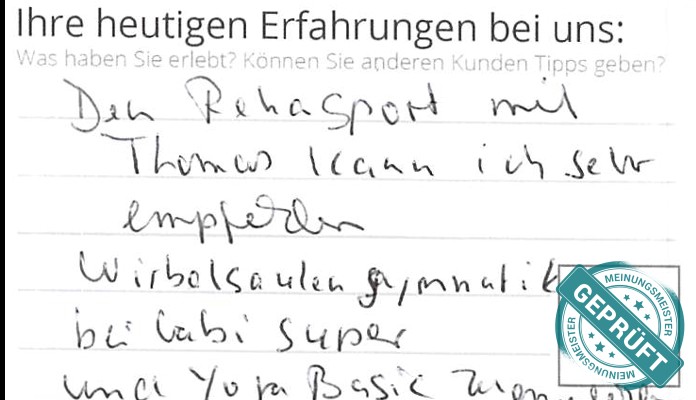 Ihre heutigen Erfahrungen bei uns:
Was haben Sie erlebt? Können Sie anderen Kunden Tipps geben?
Den Rehasport mit
Thomas kann ich sehr
empfehlen
Wirbelsäulen gymnatik
bei Gabi super
und Yoga Basic
MEINUNGSMEISTER
GEPRÜFT
MEINUNGSMEISTER